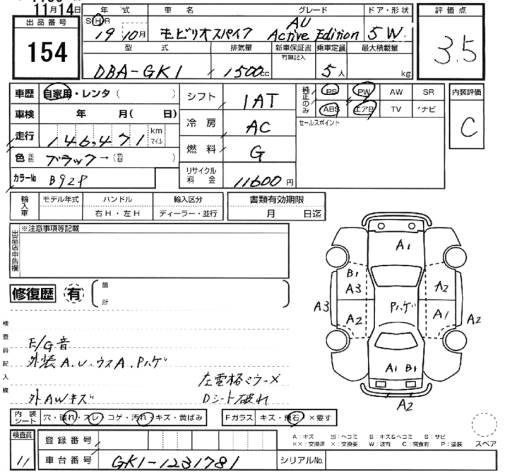 11月14日
出品番号 154
年式 19年10月
車名 モビリオスパイク
グレード AU Active Edition
ドア・形状 5W
評価点 3.5
型式 DBA-GK1
排気量 1500cc
新車保証書 有無記入
乗車定員 5人
最大積載量 kg
車歴 自家用・レンタ( )
車検 年 月( 日)
走行 146,471 km マイル
色 ブラック→
カラーNo B92P
シフト 1AT
冷房 AC
燃料 G
リサイクル料金 11600円
純正のみ PS PW AW SR
ABS エアB TV ナビ
セールスポイント
内装評価 C
輸入車 モデル年式 ハンドル 右H・左H 輸入区分 ディーラー・並行
書類有効期限 月 日迄
※注意事項等記載
修復歴 有 箇所
検査員記入欄
E/G音
外装A.U.ウスA.Pハゲ
左電格ミラーX
外AWキズ Dシート破れ
A1
B1
A3
A2
A3
A2
Pハゲ
A2
A1
A2
A1 B1
A2
内装シート 穴・破れ・スレ コゲ・汚れ キズ・黄ばみ
Fガラス キズ・飛石 ×要す
スペア
検査員 11
登録番号
車台番号 GK1-1231781
シリアルNo.
A:キズ U:ヘコミ B:キズ&ヘコミ S:サビ
××:交換済 ×:要交換 W:波付 C:腐食 P:塗装 スペア